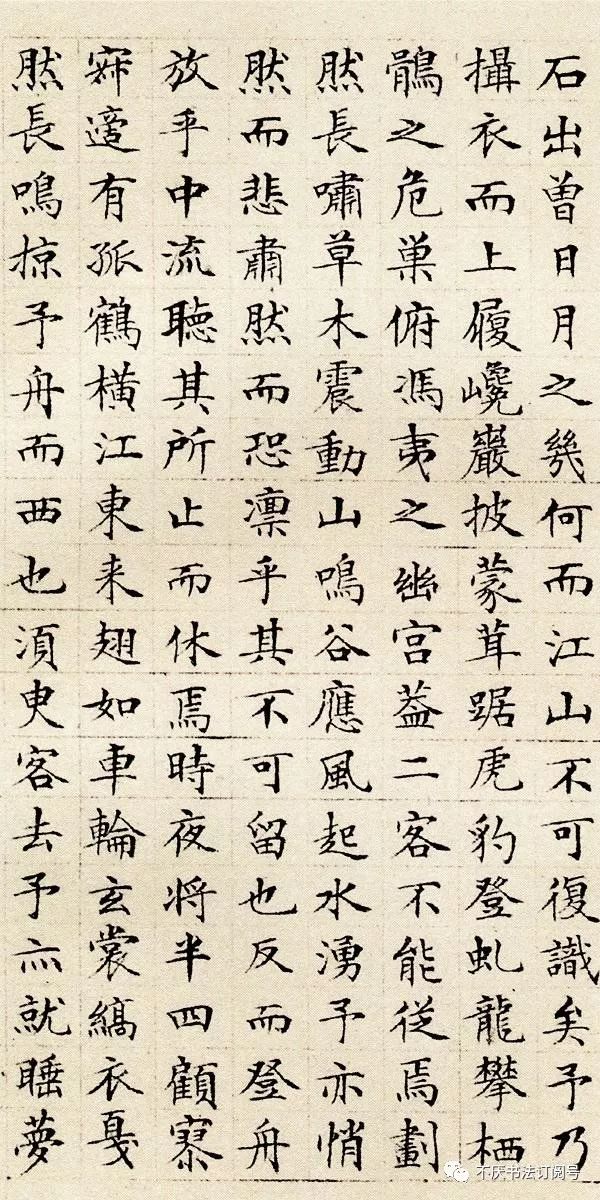 石出曾日月之幾何而江山不可復識矣予乃
攝衣而上履巉巖披蒙茸踞虎豹登虬龍攀栖
鶻之危巢俯馮夷之幽宮蓋二客不能從焉劃
然長嘯草木震動山鳴谷應風起水湧予亦悄
然而悲肅然而恐凛乎其不可留也反而登舟
放乎中流聽其所止而休焉時夜将半四顧寮
寂適有孤鶴橫江東来翅如車輪玄裳縞衣戛
然長鳴掠予舟而西也須臾客去予亦就睡夢
不厌书法订阅号